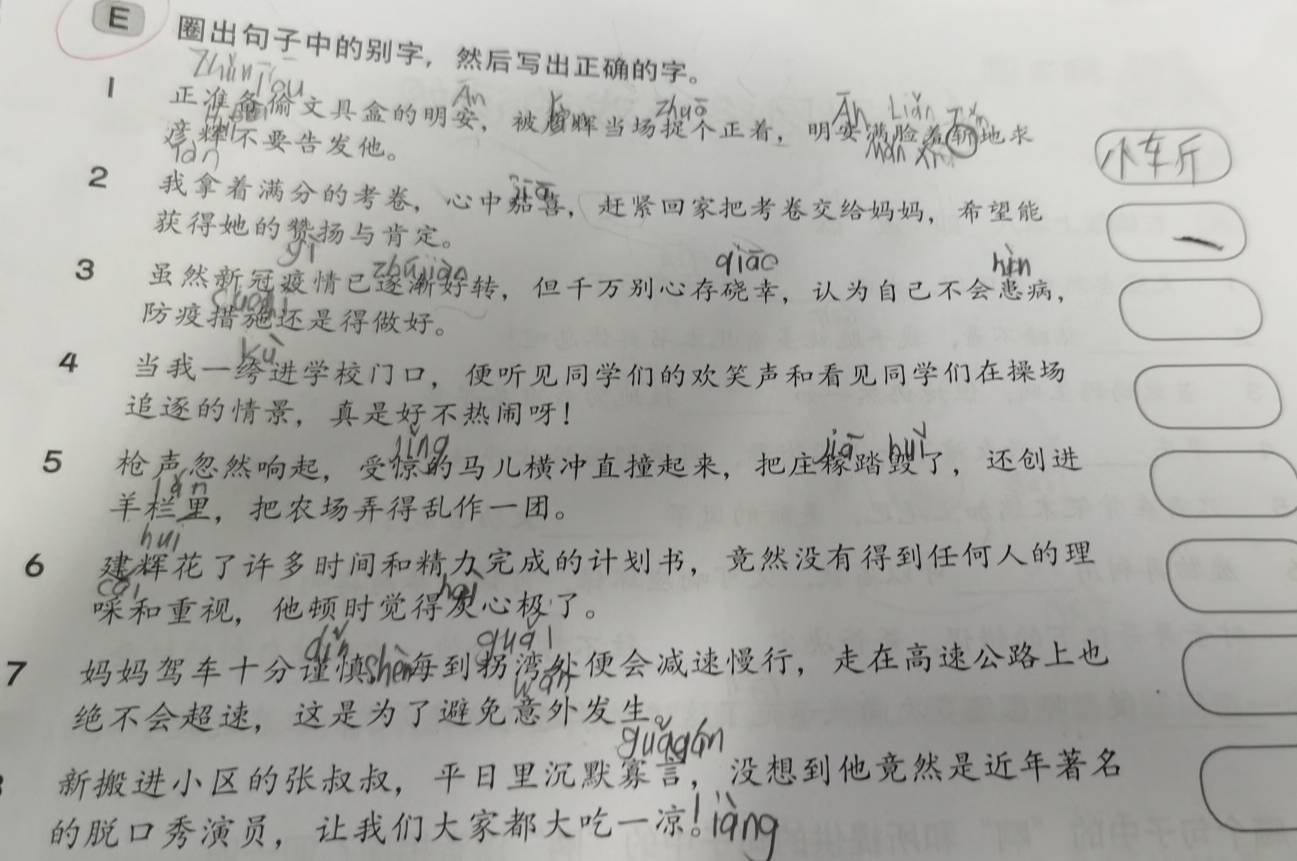 E 圈出句子中的别字，然后写出正确的字。
zhǔn tōu
1 正准备偷文具盒的明安，被彦晖当场捉个正着，明安满脸羞斩地求
Ān zhuō Ān Liǎn
小车斤
彦辉不要告发他。
mǎn
2 我拿着满分的考卷，心中喜，赶紧回家把考卷交给妈妈，希望能
获得她的赞扬与肯定。
yì zhújiàn qiǎo
3 虽然新冠疫情已逐渐好转，但千万别心存硗幸，认为自己不会患病，
防疫措施还是得做好。
kù
4 当我一绔进学校门口，便听见同学们的欢笑声和看见同学们在操场
追逐的情景，真是好不热闹呀！
jīng jiā huǐ
5 枪声忽然响起，受惊的马儿横冲直撞起来，把庄稼踏毁了，还创进
lán
羊栏里，把农场弄得乱作一团。
huī
6 建辉花了许多时间和精力完成的计划书，竟然没有得到任何人的理
cǎi
啋和重视，他顿时觉得灰心极了。
guǎi
7 妈妈驾车十分谨慎shèn每到拐湾处便会减速慢行，走在高速公路上也
wān
绝不会超速，这是为了避免意外发生。
新搬进小区的张叔叔，平日里沉默寡言，没想到他竟然是近年著名
的脱口秀演员，让我们大家都大吃一凉！liàng